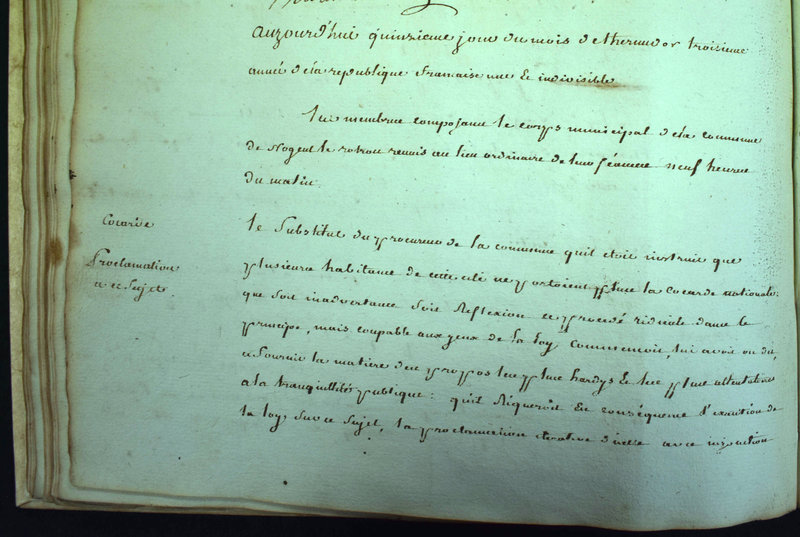 aujourd'hui quinzieme jour du mois de thermidor troisieme
année de la republique francaise une et indivisible
les membres composant le corps municipal de la commune
de Nogent le rotrou reunis au lieu ordinaire de leurs séances neuf heures
du matin
Cocarde
le Substitut du procureur de la commune qu'il etoit instruit que
Proclamation
a ce Sujet
plusieurs habitans de cette cité ne portoient plus la Cocarde nationale:
que soit inadvertance soit Reflexion ce procédé ridicule dans le
principe, mais coupable aux yeux de la loy commencoit, lui avoit on dit,
a fournir la matière des propos les plus hardys et les plus attentatoires
a la tranquillité publique: qu'il Requeroit en conséquence l'execution de
la loy sur ce Sujet, la proclamation d'icelle avec injonction